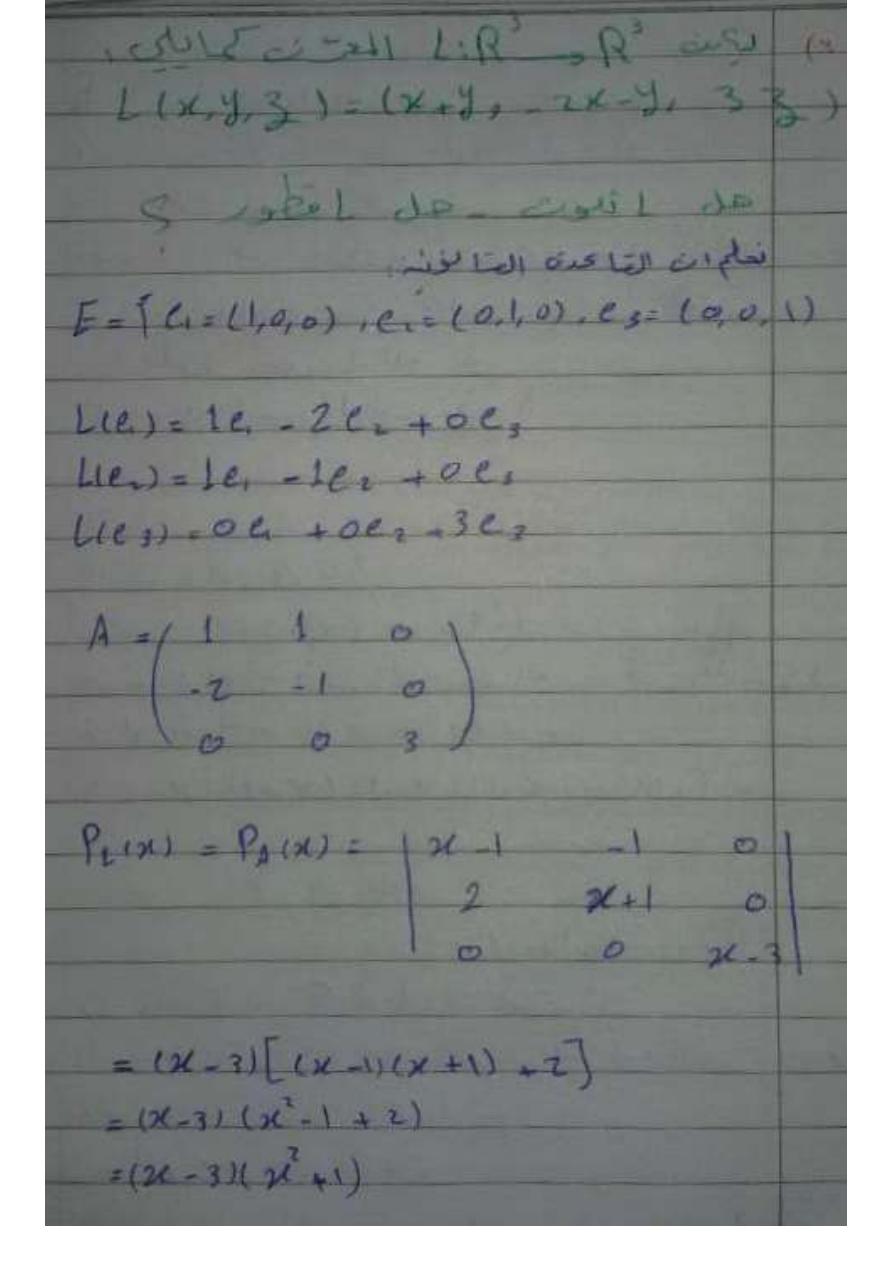 ليكن L:R³ → R³ المعرف كمايلي:
L(x,y,z) = (x+y, -2x-y, 3z)
هل L قطور ؟
نعلم ان القاعدة القانونية
E = { e₁=(1,0,0), e₂=(0,1,0), e₃=(0,0,1)
L(e₁) = 1e₁ - 2e₂ + 0e₃
L(e₂) = 1e₁ - 1e₂ + 0e₃
L(e₃) = 0e₁ + 0e₂ + 3e₃
A = ( 1 1 0
-2 -1 0
0 0 3 )
P_L(x) = P_A(x) = | x-1 -1 0 |
2 x+1 0
0 0 x-3
= (x-3)[(x-1)(x+1)+2]
= (x-3)(x²-1+2)
= (x-3)(x²+1)